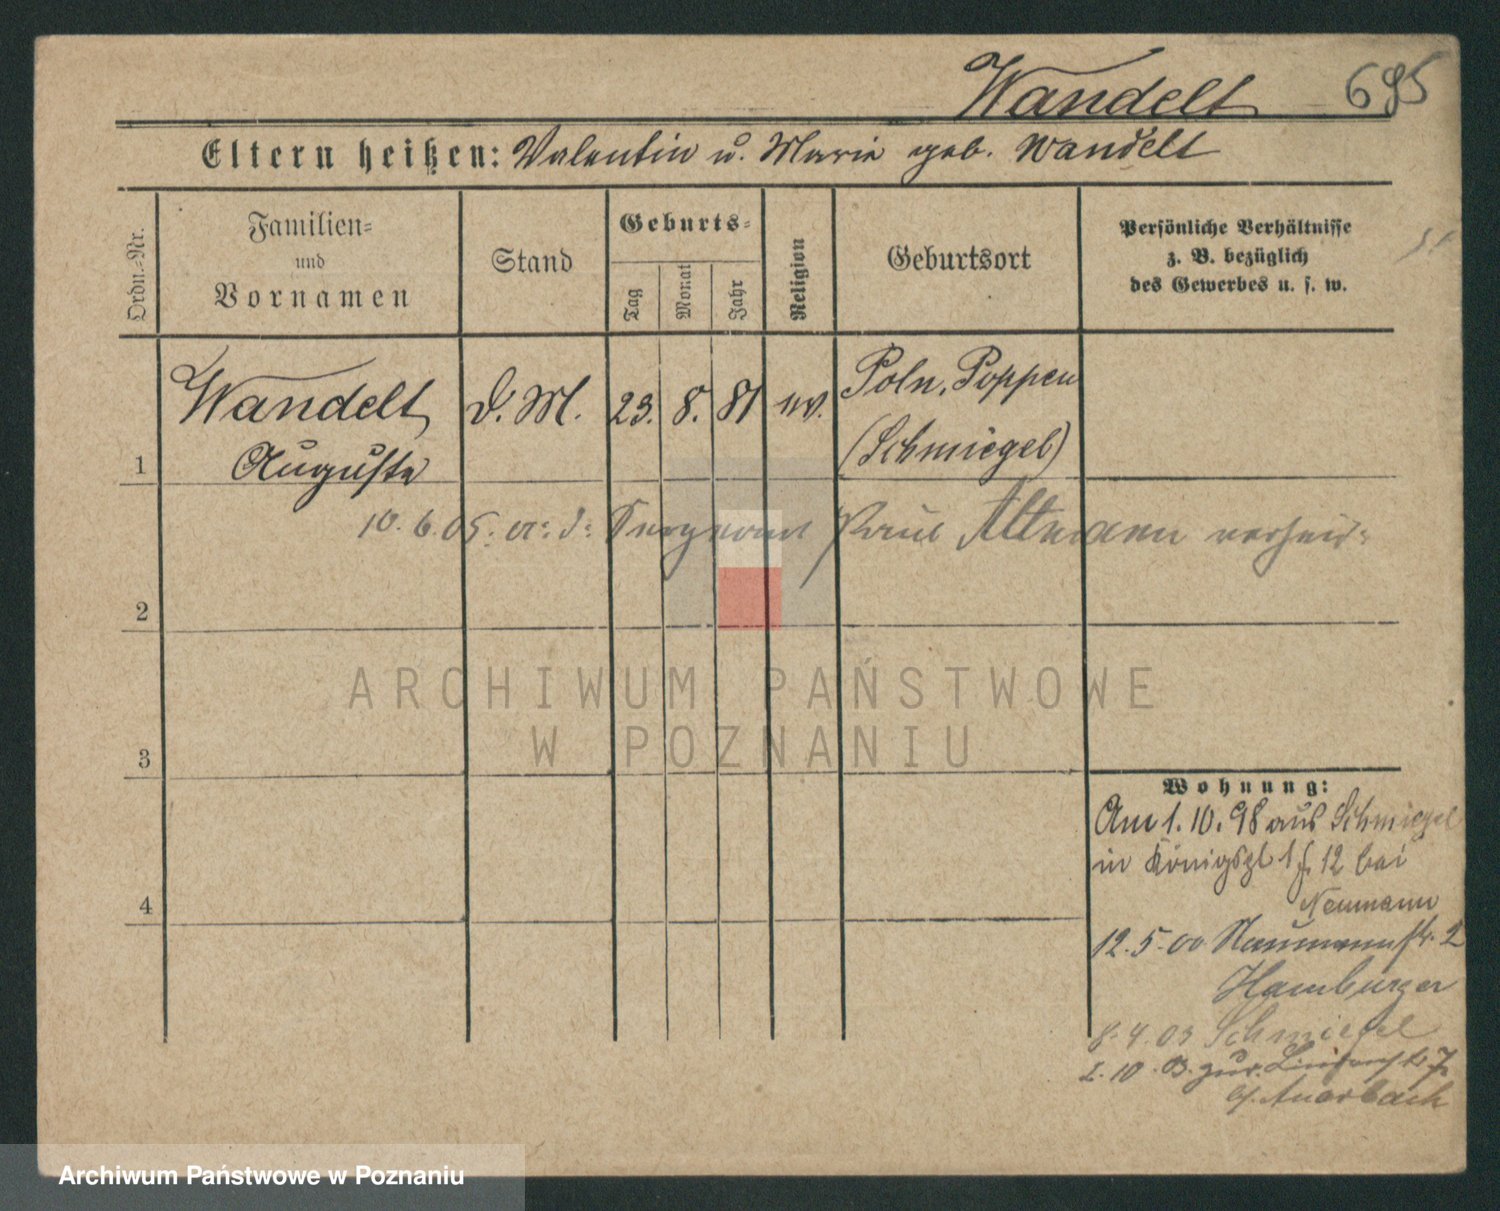 Wandelt 695
Eltern heißen: Valentin u. Marie geb. Wandelt
Ordn.-Nr.
Familien-
und
Vornamen
Stand
Geburts-
Tag
Monat
Jahr
Religion
Geburtsort
Persönliche Verhältnisse
z. B. bezüglich
des Gewerbes u. s. w.
Wandelt, D. M. 23. 8. 81 ev. Poln. Poppen
1 Auguste (Schmiegel)
10. 6. 05. a. d. Sergeant Paul Altmann verheir.
2
ARCHIWUM PAŃSTWOWE
W POZNANIU
3
4
Wohnung:
Am 1. 10. 98 aus Schmiegel
in Königspl. 12 bei
Neumann
12. 5. 00 Naumannstr. 2
Hamburger
8. 4. 03 Schmiegel
1. 10. 03. zur. 7
b/. Auerbach
Archiwum Państwowe w Poznaniu